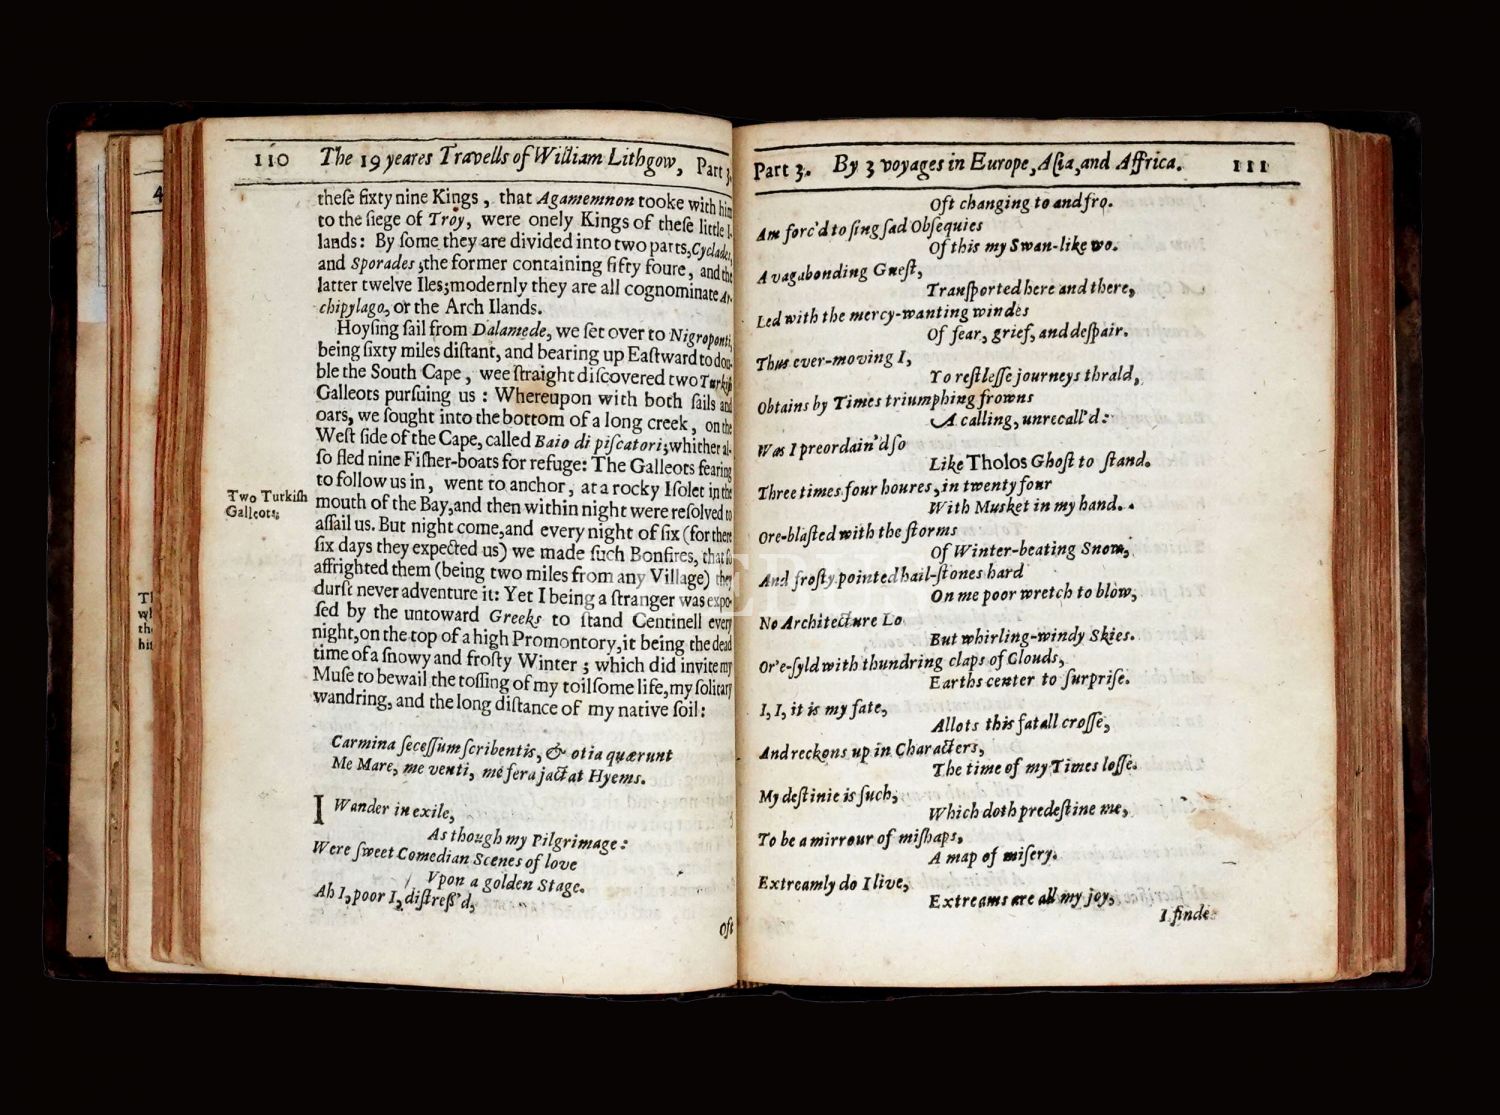 110 The 19 yeares Travells of William Lithgow, Part 3.
theſe ſixty nine Kings, that Agamemnon tooke with him
to the ſiege of Troy, were onely Kings of theſe little I-
lands: By ſome they are divided into two parts, Cyclades,
and Sporades; the former containing fifty foure, and the
latter twelve Iles; modernly they are all cognominate Ar-
chipylago, or the Arch Ilands.
Hoyſing ſail from Dalamede, we ſet over to Nigroponti,
being ſixty miles diſtant, and bearing up Eaſtward to dou-
ble the South Cape, wee ſtraight diſcovered two Turkiſh
Galleots purſuing us: Whereupon with both ſails and
oars, we ſought into the bottom of a long creek, on the
Weſt ſide of the Cape, called Baio di piſcatori; whither al-
ſo fled nine Fiſher-boats for refuge: The Galleots fearing
to follow us in, went to anchor, at a rocky Iſolet in the
Two Turkiſh
Galleots.
mouth of the Bay, and then within night were reſolved to
aſſail us. But night come, and every night of ſix (for there
ſix days they expected us) we made ſuch Bonfires, that ſo
affrighted them (being two miles from any Village) they
durſt never adventure it: Yet I being a ſtranger was expo-
ſed by the untoward Greeks to ſtand Centinell every
night, on the top of a high Promontory, it being the dead
time of a ſnowy and froſty Winter; which did invite my
Muſe to bewail the toſſing of my toilſome life, my ſolitary
wandring, and the long diſtance of my native ſoil:
Carmina ſeceſſum ſcribentis, & otia quærunt
Me Mare, me venti, me fera jactat Hyems.
I Wander in exile,
As though my Pilgrimage:
Were ſweet Comedian Scenes of love
Vpon a golden Stage.
Ah I, poor I, diſtreß'd,
Oft
4
Th
wh
the
hin
Part 3. By 3 voyages in Europe, Aſia, and Affrica. 111
Oft changing to and fro.
Am forc'd to ſing ſad Obſequies
Of this my Swan-like wo.
A vagabonding Gueſt,
Tranſported here and there,
Led with the mercy-wanting windes
Of fear, grief, and deſpair.
Thus ever-moving I,
To reſtleſſe journeys thrald,
Obtains by Times triumphing frowns
A calling, unrecall'd:
Was I preordain'd ſo
Like Tholos Ghoſt to ſtand.
Three times four houres, in twenty four
With Musket in my hand.
Ore-blaſted with the ſtorms
Of Winter-beating Snow,
And froſty pointed hail-ſtones hard
On me poor wretch to blow,
No Architecture Lo
But whirling-windy Skies.
Or'e-ſyld with thundring claps of Clouds,
Earths center to ſurpriſe.
I, I, it is my fate,
Allots this fatall croſſe,
And reckons up in Characters,
The time of my Times loſſe.
My deſtinie is ſuch,
Which doth predeſtine me,
To be a mirrour of miſhaps,
A map of miſery.
Extreamly do I live,
Extreams are all my joy,
I finde